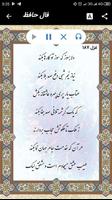 فال حافظ
غزل ۱۸۷
دلا بسوز که سوز تو کارها بکند
نیاز نیم شبی دفع صد بلا بکند
عتاب یار پری چهره عاشقانه بکش
که یک کرشمه تلافی صد جفا بکند
ز ملک تا ملکوتش حجاب بردارند
هر آن که خدمت جام جهان نما بکند
طبیب عشق مسیحا دم است و مشفق لیک